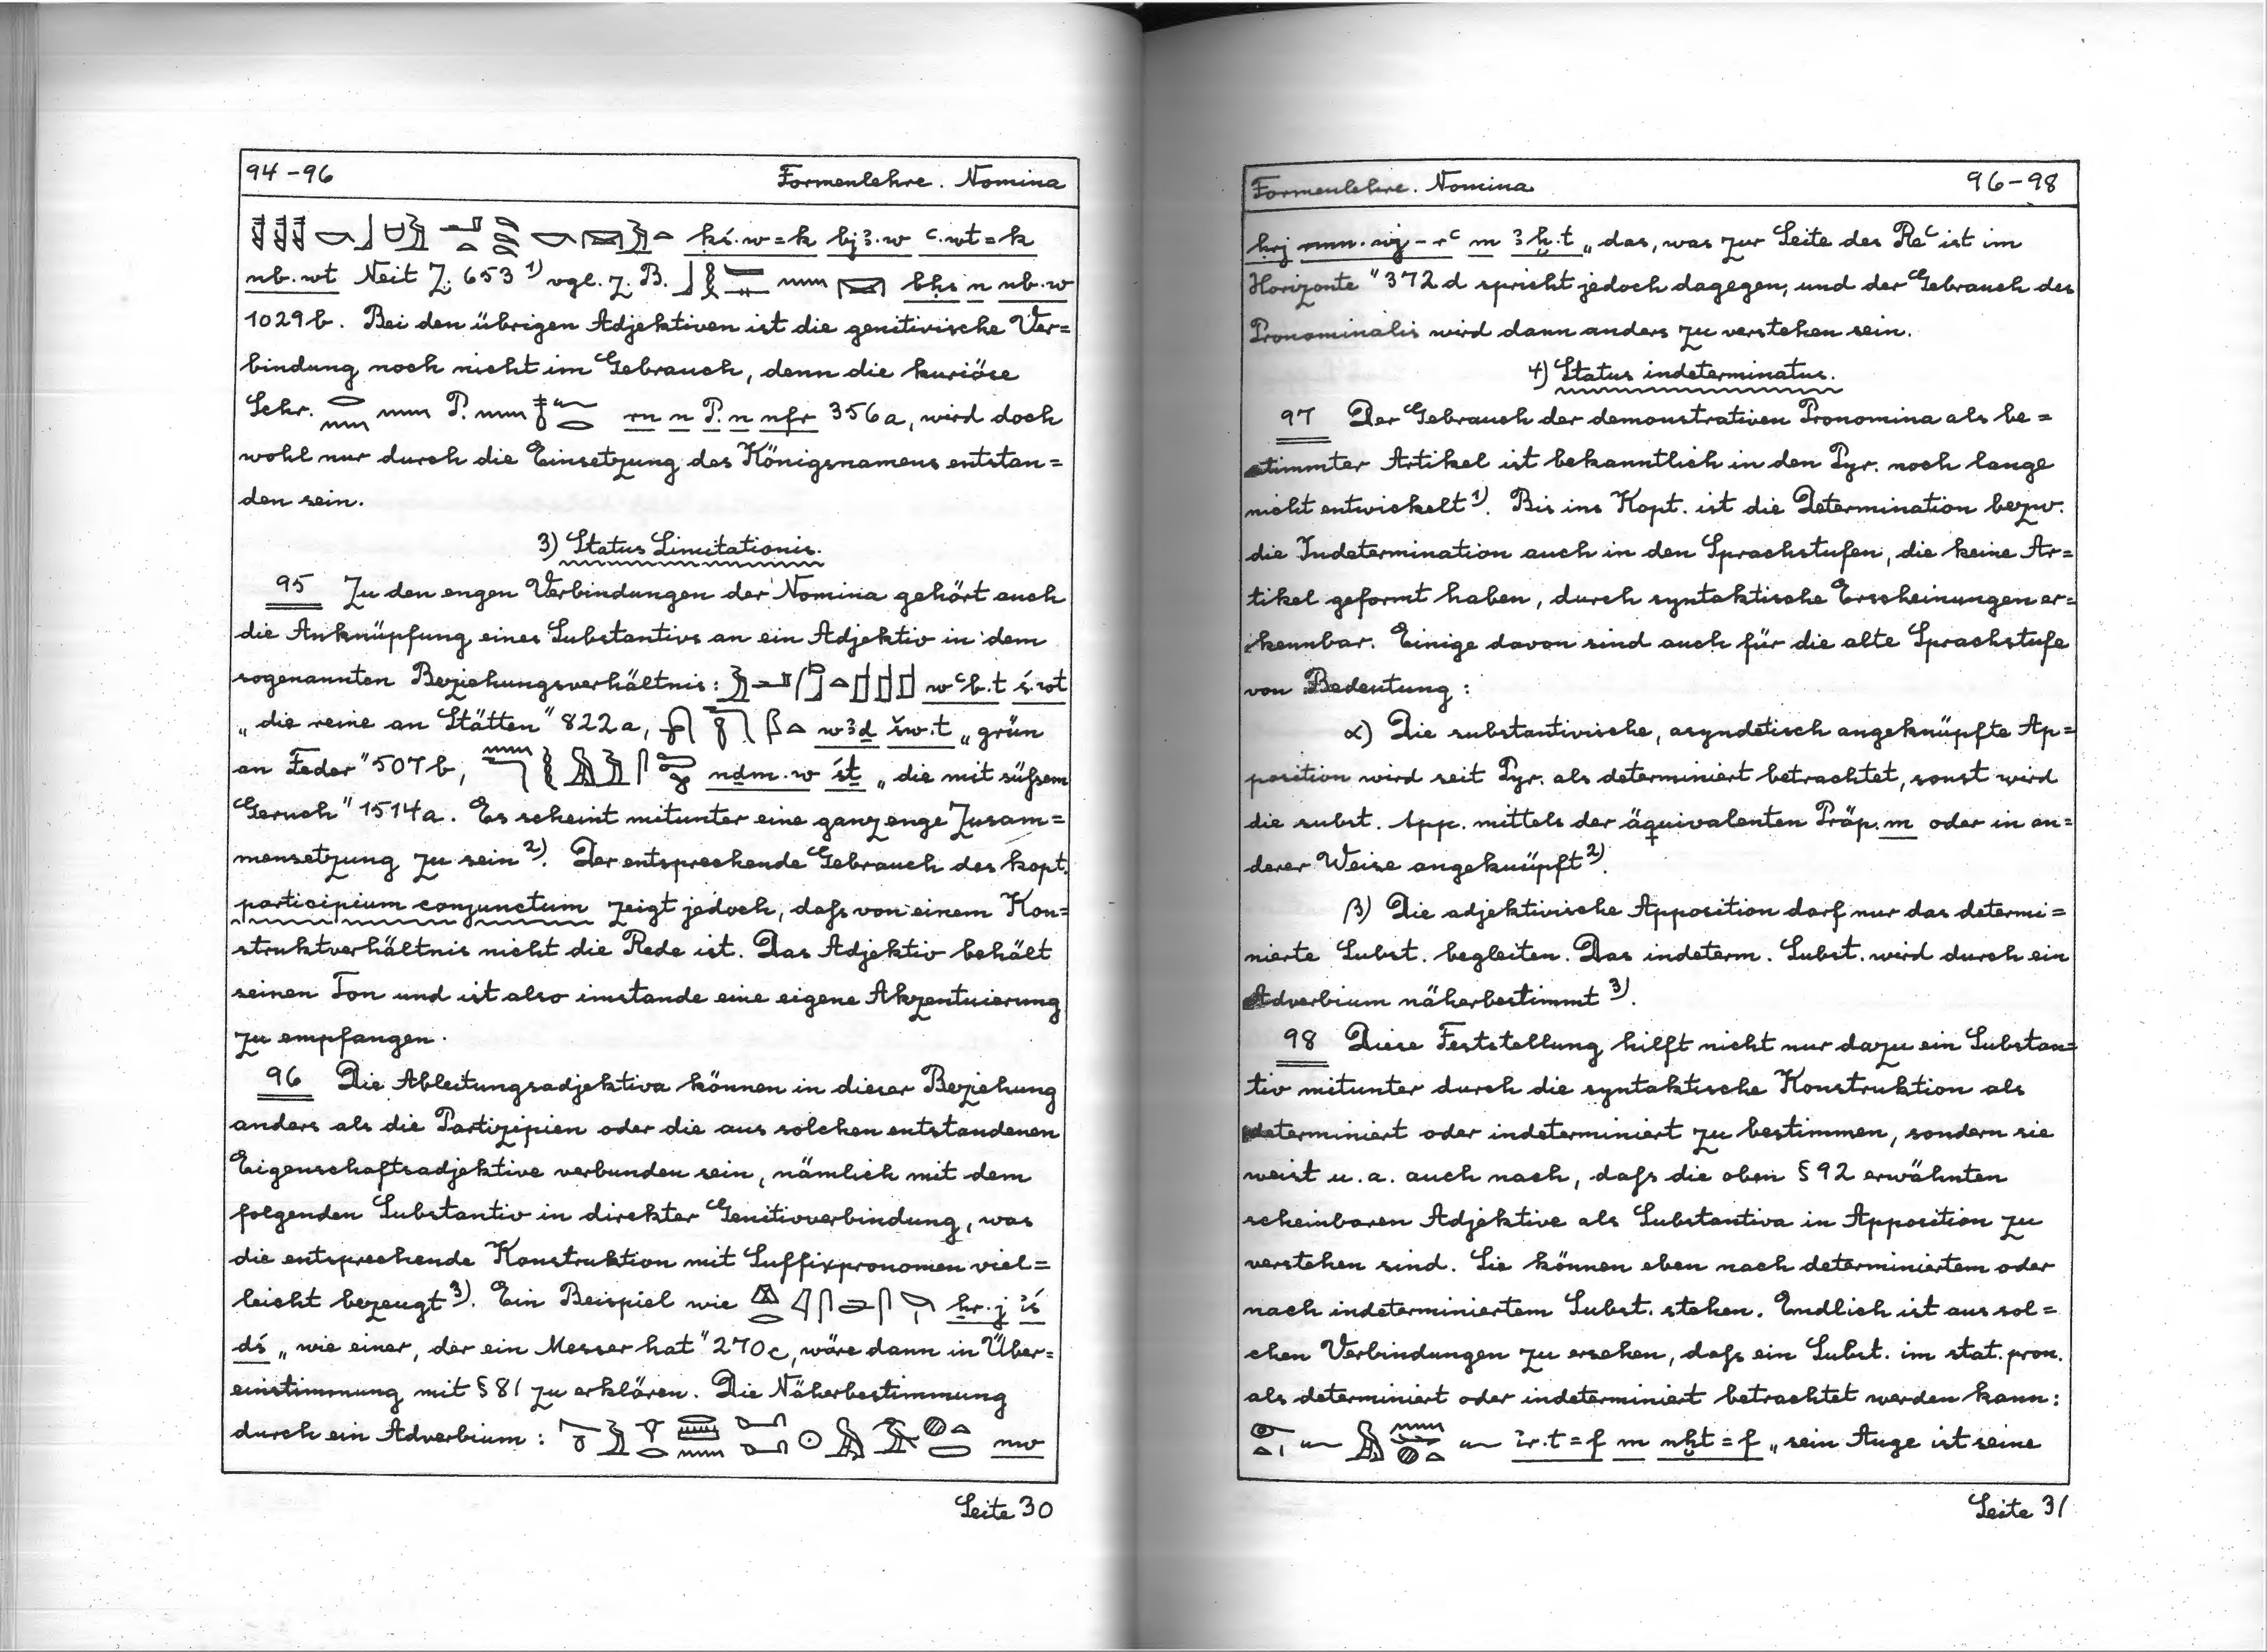 94-96 Formenlehre. Nomina
ḳś.w=k bjꜣ.w ꜥ.wt=k
nb.wt Neit Z. 653 1) vgl. z. B. bḥs n nb.w
1029b. Bei den übrigen Adjektiven ist die genitivische Ver=
bindung noch nicht im Gebrauch, denn die kuriöse
Schr. P. rn n P. n nfr 356a, wird doch
wohl nur durch die Einsetzung des Königsnamens entstan=
den sein.
3) Status Limitationis.
95 Zu den engen Verbindungen der Nomina gehört auch
die Anknüpfung eines Substantivs an ein Adjektiv in dem
sogenannten Beziehungsverhältnis: wꜥb.t ś.wt
„die reine an Stätten" 822a, wꜣḏ šw.t „grün
an Feder" 507b, nḏm.w śṯ „die mit süßem
Geruch" 1514a. Es scheint mitunter eine ganz enge Zusam=
mensetzung zu sein 2). Der entsprechende Gebrauch des kopt.
participium conjunctum zeigt jedoch, daß von einem Kon=
struktverhältnis nicht die Rede ist. Das Adjektiv behält
seinen Ton und ist also imstande eine eigene Akzentuierung
zu empfangen.
96 Die Ableitungsadjektiva können in dieser Beziehung
anders als die Partizipien oder die aus solchen entstandenen
Eigenschaftsadjektive verbunden sein, nämlich mit dem
folgenden Substantiv in direkter Genitivverbindung, was
die entsprechende Konstruktion mit Suffixpronomen viel=
leicht bezeugt 3). Ein Beispiel wie ẖr.j ı͗ś
dś „wie einer, der ein Messer hat" 270c, wäre dann in Über=
einstimmung mit § 81 zu erklären. Die Näherbestimmung
durch ein Adverbium: nw
Seite 30
Formenlehre. Nomina 96-98
ḥrj rmn.wj-rꜥ m ꜣḫ.t „das, was zur Seite des Reꜥ ist im
Horizonte" 372d spricht jedoch dagegen, und der Gebrauch des
Pronominalis wird dann anders zu verstehen sein.
4) Status indeterminatus.
97 Der Gebrauch der demonstrativen Pronomina als be=
stimmter Artikel ist bekanntlich in den Pyr. noch lange
nicht entwickelt 1). Bis ins Kopt. ist die Determination bezw.
die Indetermination auch in den Sprachstufen, die keine Ar=
tikel geformt haben, durch syntaktische Erscheinungen er=
kennbar. Einige davon sind auch für die alte Sprachstufe
von Bedeutung:
α) Die substantivische, asyndetisch angeknüpfte Ap=
position wird seit Pyr. als determiniert betrachtet, sonst wird
die subst. App. mittels der äquivalenten Präp. m oder in an=
derer Weise angeknüpft 2).
β) Die adjektivische Apposition darf nur das determi=
nierte Subst. begleiten. Das indeterm. Subst. wird durch ein
Adverbium näherbestimmt 3).
98 Diese Feststellung hilft nicht nur dazu ein Substan=
tiv mitunter durch die syntaktische Konstruktion als
determiniert oder indeterminiert zu bestimmen, sondern sie
weist u. a. auch nach, daß die oben § 92 erwähnten
scheinbaren Adjektive als Substantiva in Apposition zu
verstehen sind. Sie können eben nach determiniertem oder
nach indeterminiertem Subst. stehen. Endlich ist aus sol=
chen Verbindungen zu ersehen, daß ein Subst. im stat. pron.
als determiniert oder indeterminiert betrachtet werden kann:
ı͗r.t=f m nḫt=f „sein Auge ist seine
Seite 31